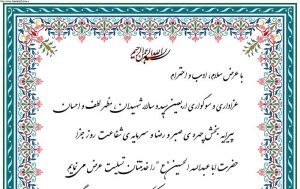 بسم الله الرحمن الرحیم
با عرض سلام، ادب و احترام
عزاداری و سوگواری اربعین سید و سالار شهیدان، مظهر لطف و احسان
پیرایه بخش چهره ی صبر و رضا و سرمایه ی شفاعت روز جزا
حضرت اباعبدالله الحسین را خدمتتان تسلیت عرض می نمایم